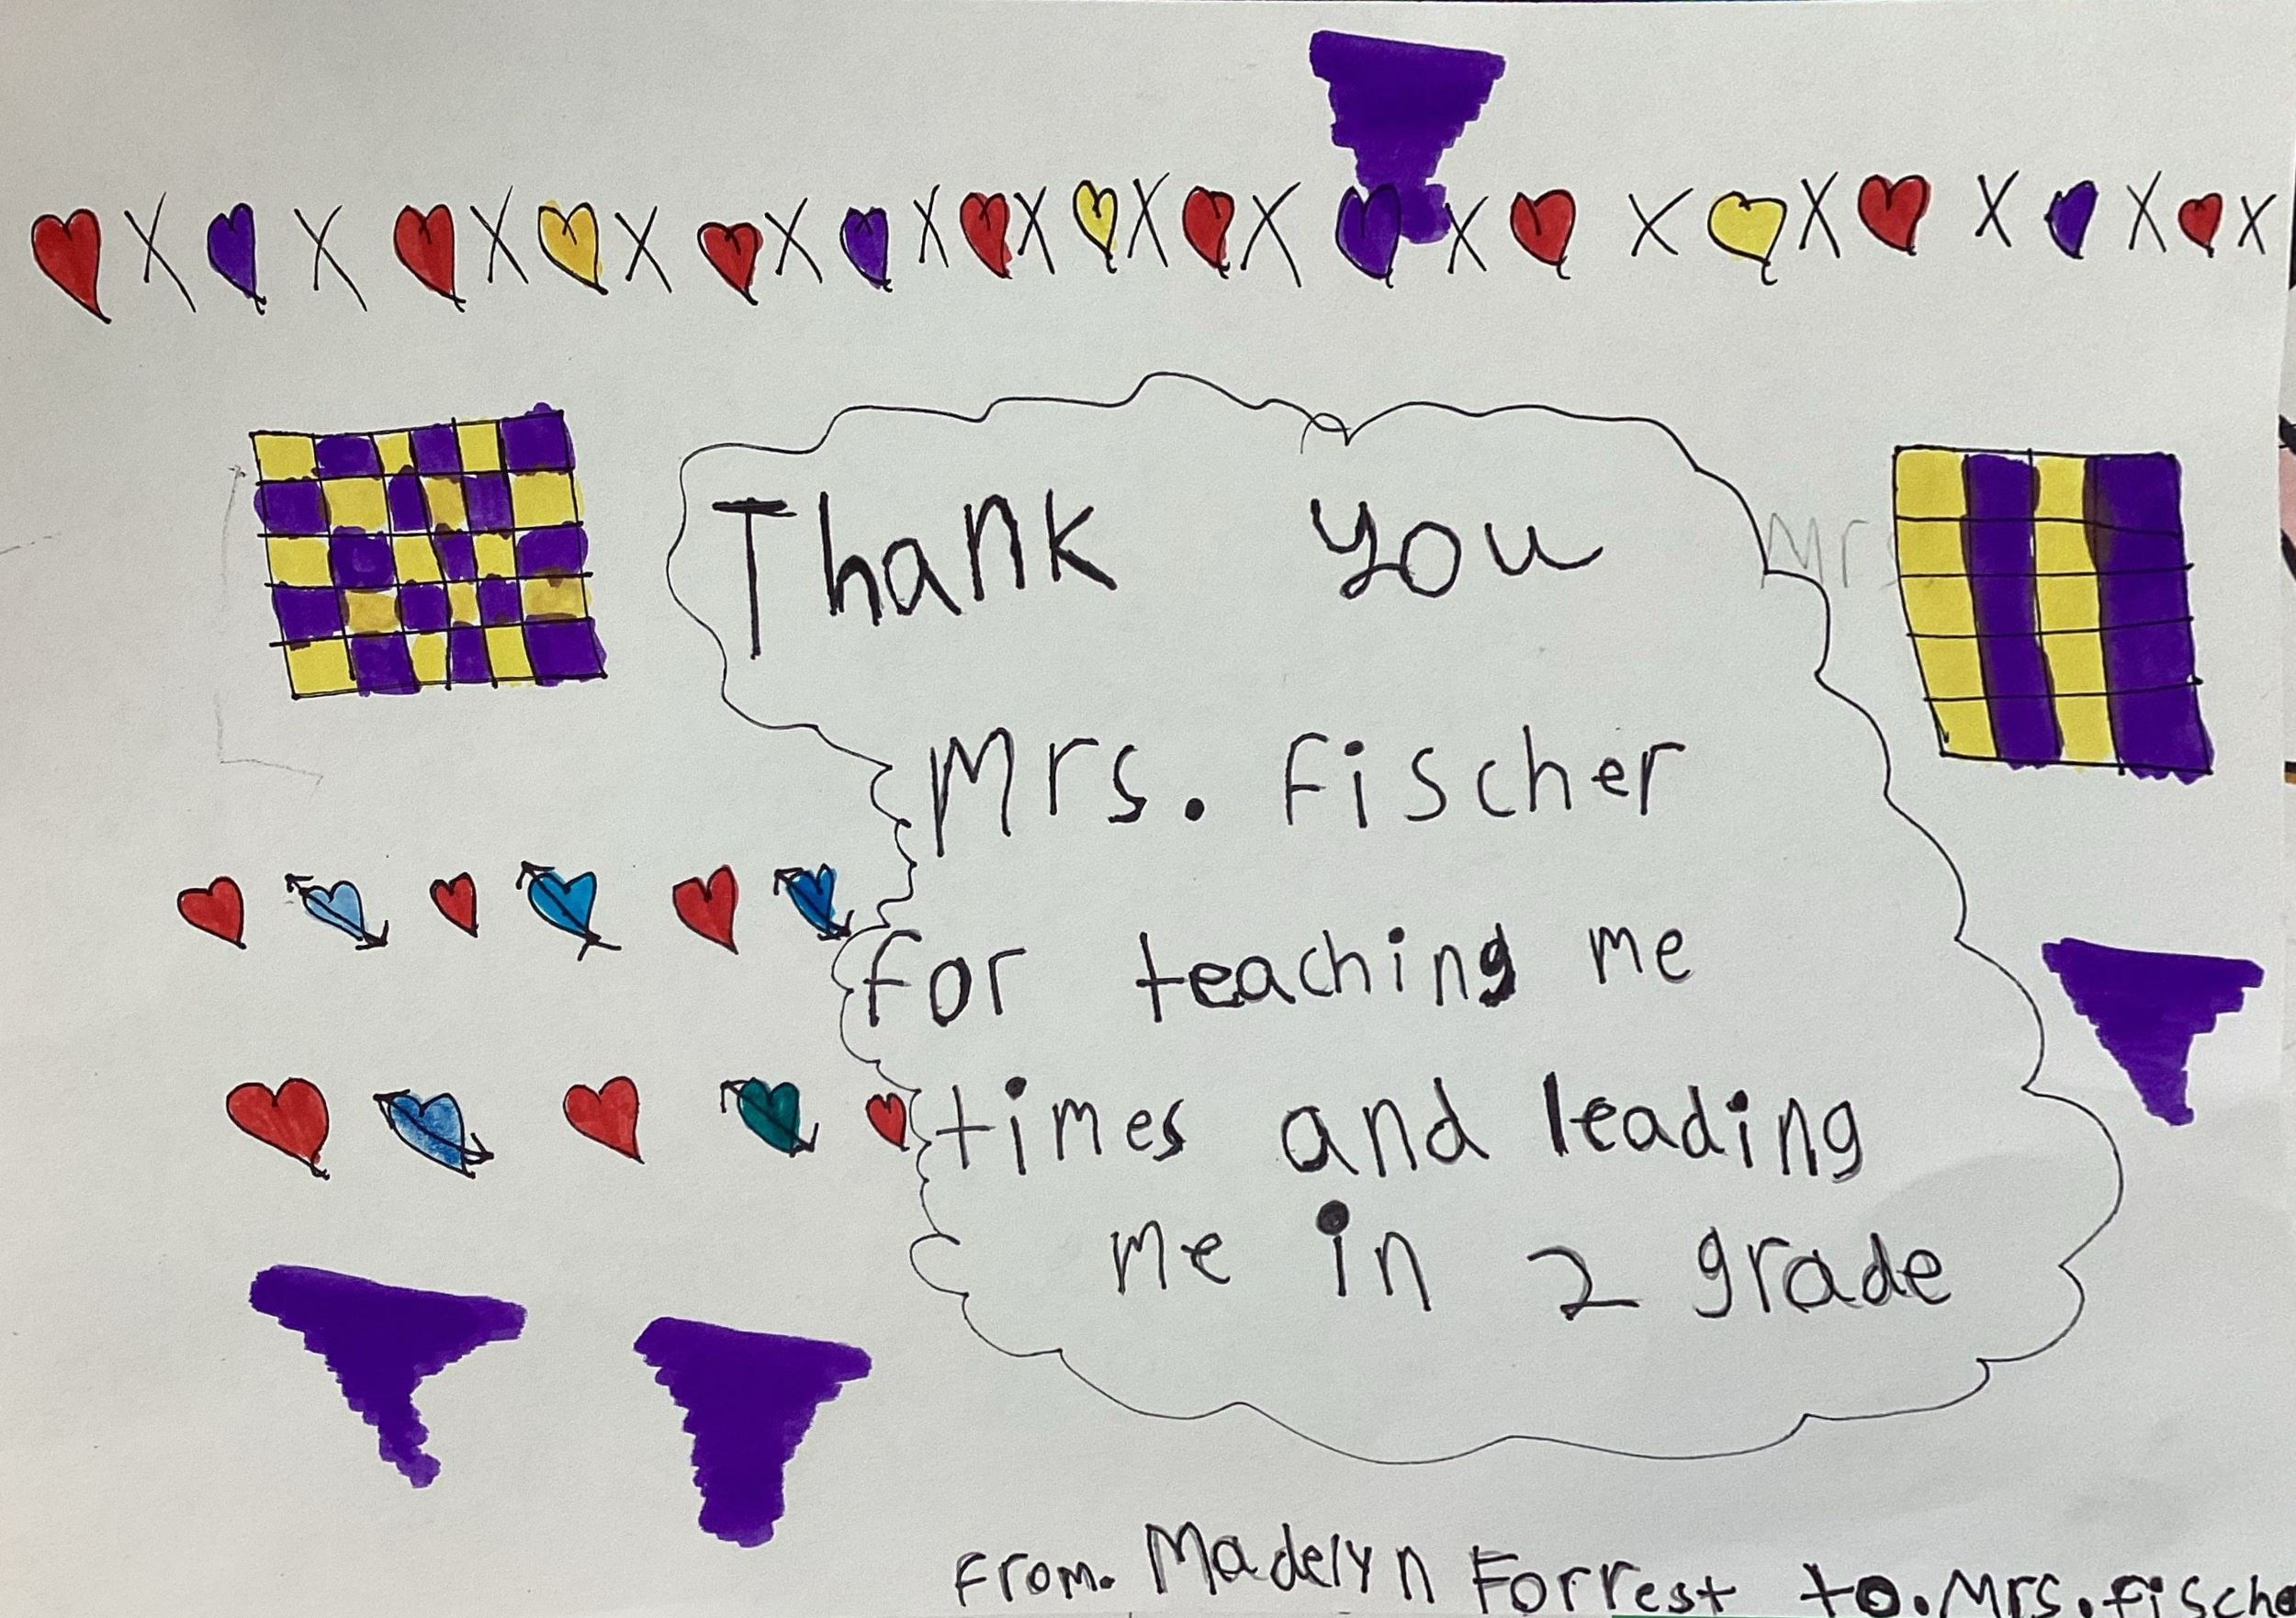 X X X X X X X X X X X X X X X
Thank you
Mrs
Mrs. Fischer
for teaching me
times and leading
me in 2 grade
From. Madelyn Forrest to. Mrs. fische